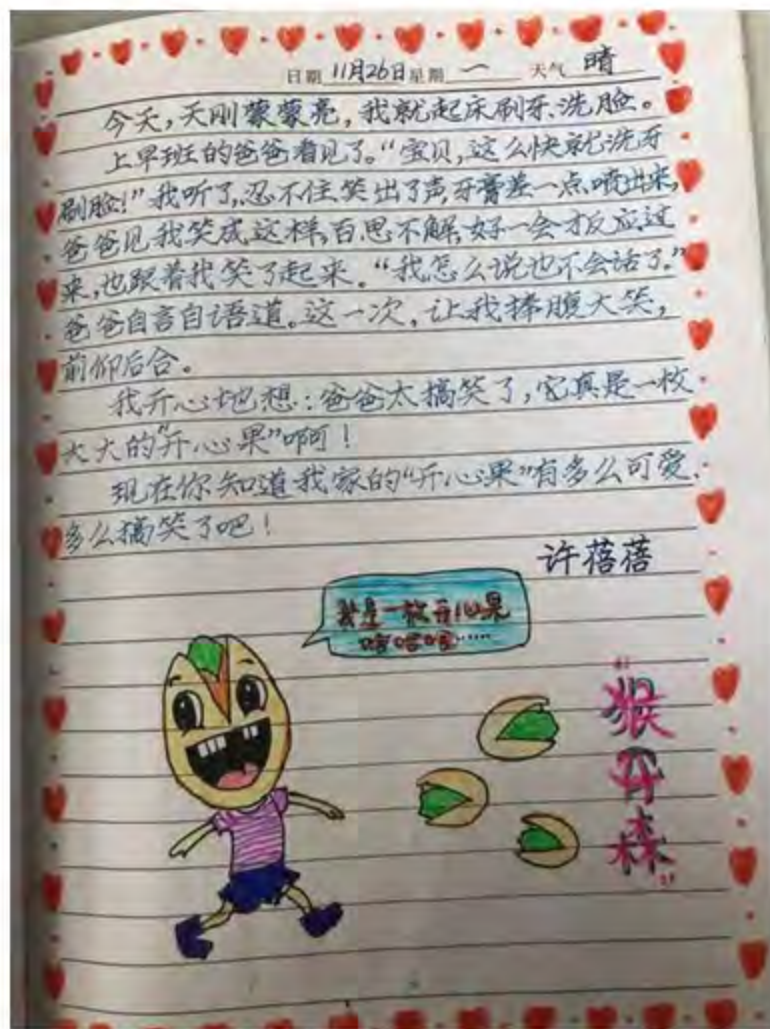 日期 11月26日 星期 一 天气 晴
今天,天刚蒙蒙亮,我就起床刷牙、洗脸。
上早班的爸爸看见了。“宝贝,这么快就洗牙
刷脸!”我听了,忍不住笑出了声,牙膏差一点喷出来,
爸爸见我笑成这样,百思不解,好一会才反应过
来,也跟着我笑了起来。“我怎么说也不会话了。”
爸爸自言自语道。这一次,让我捧腹大笑,
前仰后合。
我开心地想:爸爸太搞笑了,它真是一枚
大大的“开心果”啊!
现在你知道我家的“开心果”有多么可爱、
多么搞笑了吧!
许蓓蓓
我是一枚开心果
哈哈哈……
“猴开森”